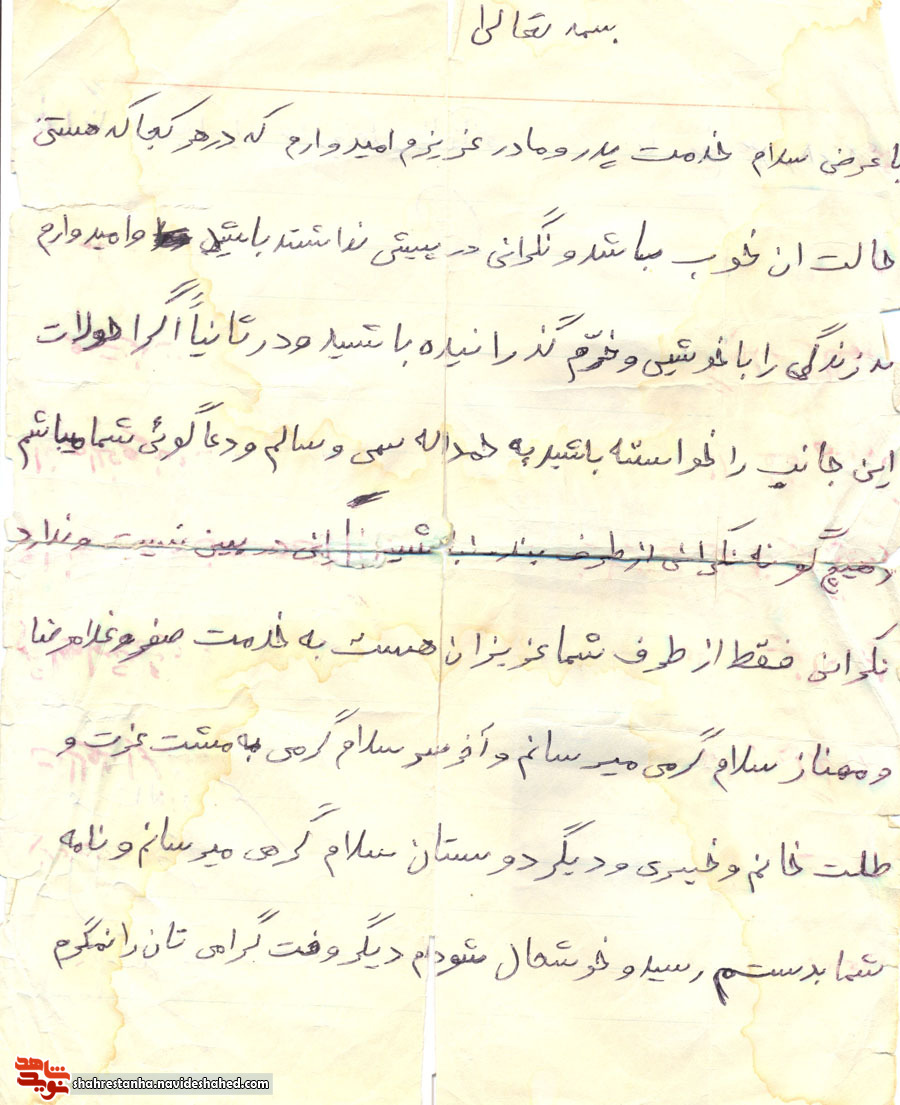 بسمه تعالی
با عرض سلام خدمت پدر و مادر عزیزم امیدوارم که در هر کجا که هستی
حالت ان خوب مباشد و نگرانی در پیشی نداشته باشید وامیدوارم
زندگی را با خوشیی و خرّم گذرانیده باشید ودر ثانیاً اگر احولات
این جانب را خواسته باشید به حمداله سهی و سالم و دعاگوئی شما میباشم
هیچ گونه نگرانی از طرف بنده نباشید نگرانی در بین نیست و ندارد
نگرانی فقط از طرف شما عزیزان هست به خدمت صفر و غلامرضا
و مهناز سلام گرمی میرسانم و آخر سر سلام گرمی به مشت عزت و
طلت خانم و خیبری و دیگر دوستان سلام گرمی میرسانم و نامه
شما بدستم رسید و خوشحال شودم دیگر وقت گرامی تان را نمگرم
شاهد
نوید
shahrestanha.navideshahed.com